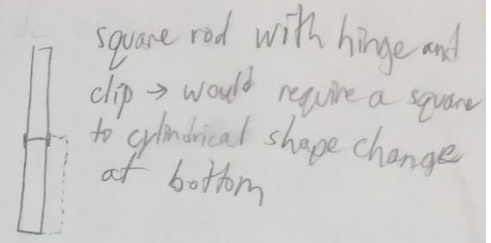 square rod with hinge and
clip → would require a square
to cylindrical shape change
at bottom